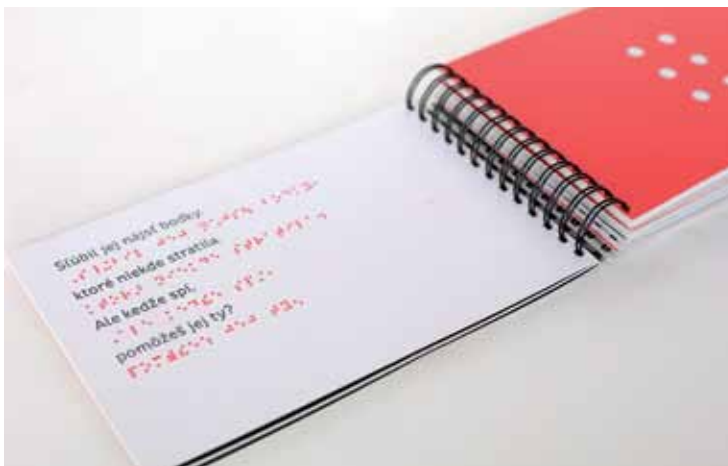 Sľúbil jej nájsť bodky,
ktoré niekde stratila.
Ale keďže spí,
pomôžeš jej ty?